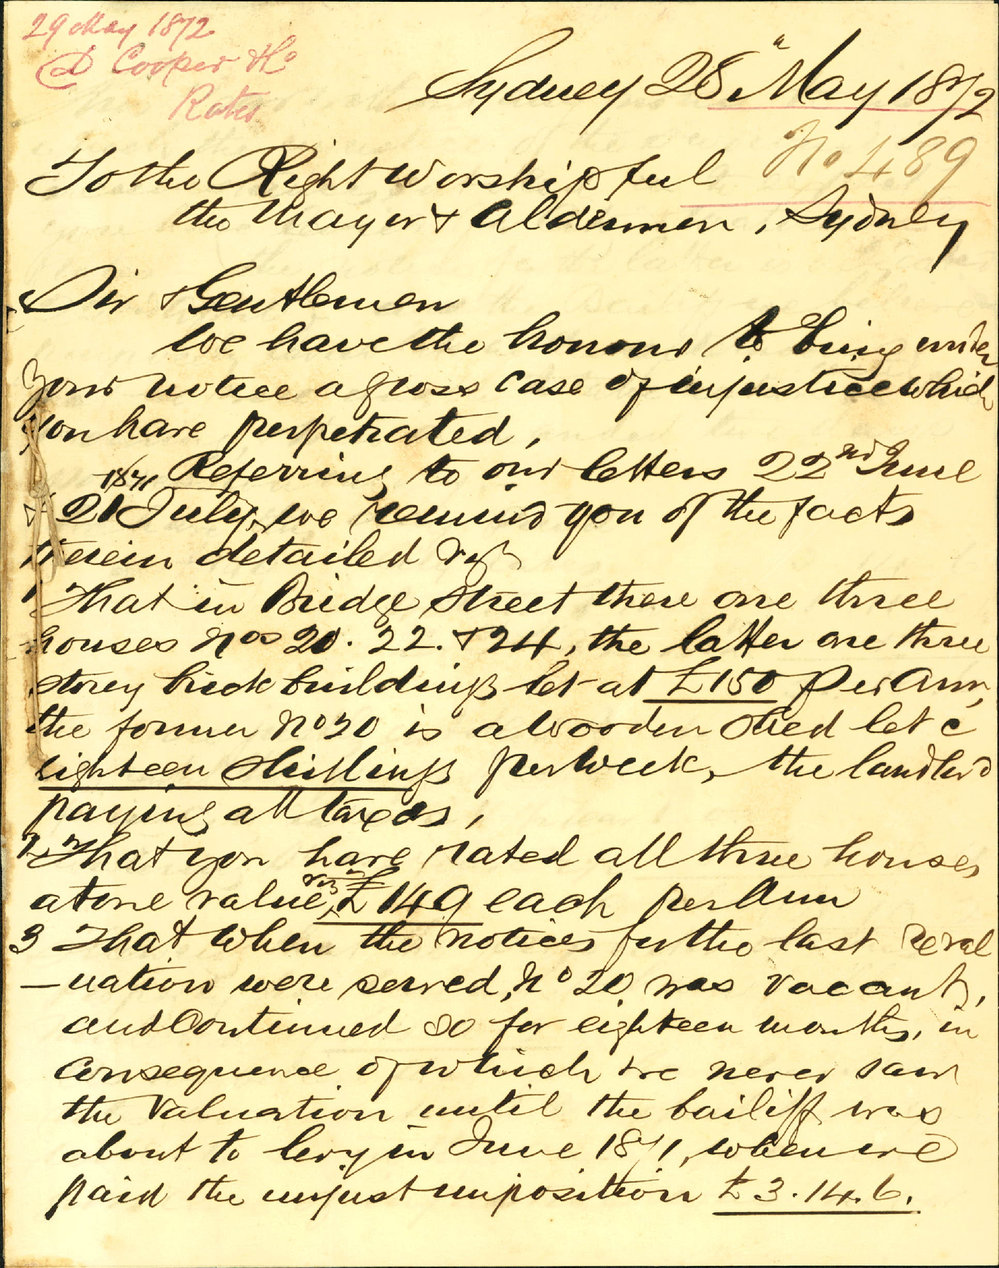 29 May 1872
D Cooper & Co
Rates
Sydney 28 May 1872
No 489
To the Right Worshipful
the Mayor & Aldermen, Sydney
Sir & Gentlemen
We have the honour to bring under
your notice a gross case of injustice which
you have perpetrated,
1871 Referring to our letters 22nd June
& 21 July, we remind you of the facts
therein detailed viz
1 That in Bridge Street there are three
houses Nos 20. 22. & 24, the latter are three
storey brick buildings let at £150 per Ann,
the former No 20 is a wooden shed let @
eighteen shillings per week, the landlord
paying all taxes,
2 That you have rated all three houses
at one value, viz £149 each per Ann
3 That when the notices for the last reval
-uation were served, No 20 was vacant,
and continued so for eighteen months, in
consequence of which we never saw
the valuation until the bailiff was
about to levy in June 1871, when we
paid the unjust imposition £3.14.6.